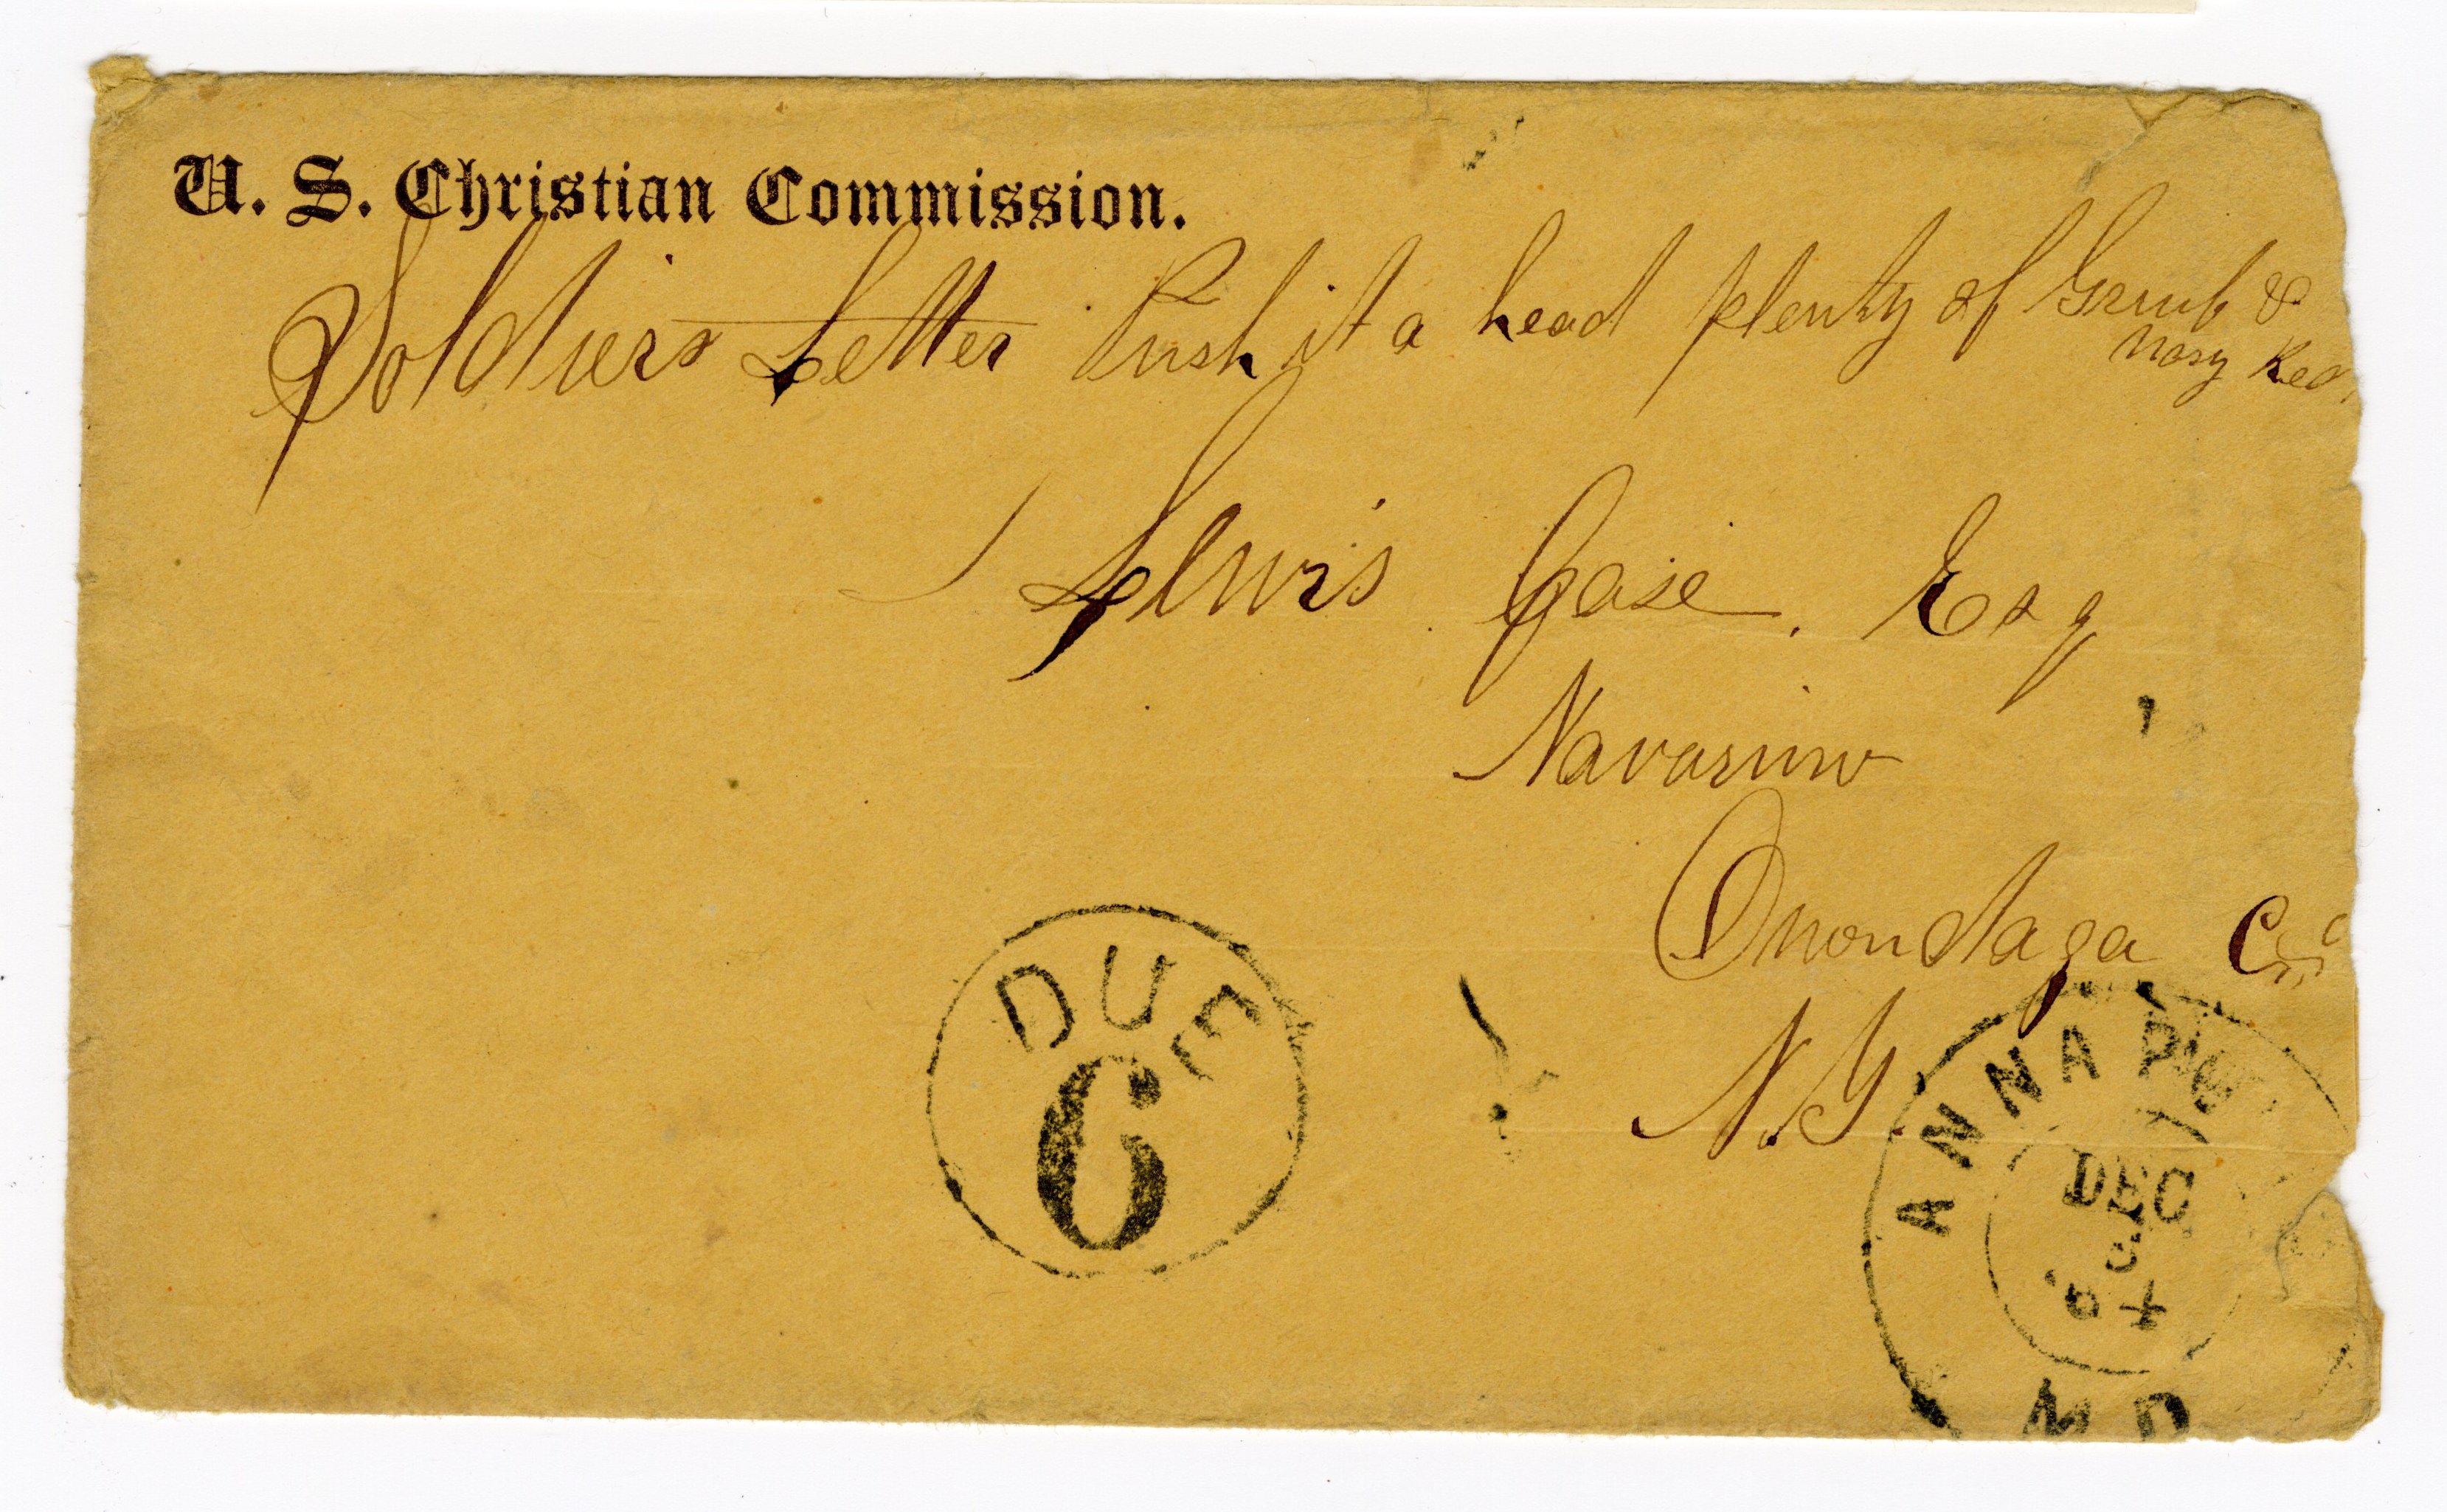 U. S. Christian Commission.
Soldiers Letter Push it a head plenty of Grub &
Nary Red
Lewis Case. Esq
Navarino
Onondaga Co
N.Y.
DUE
6
ANNAPO
DEC
'64
MD